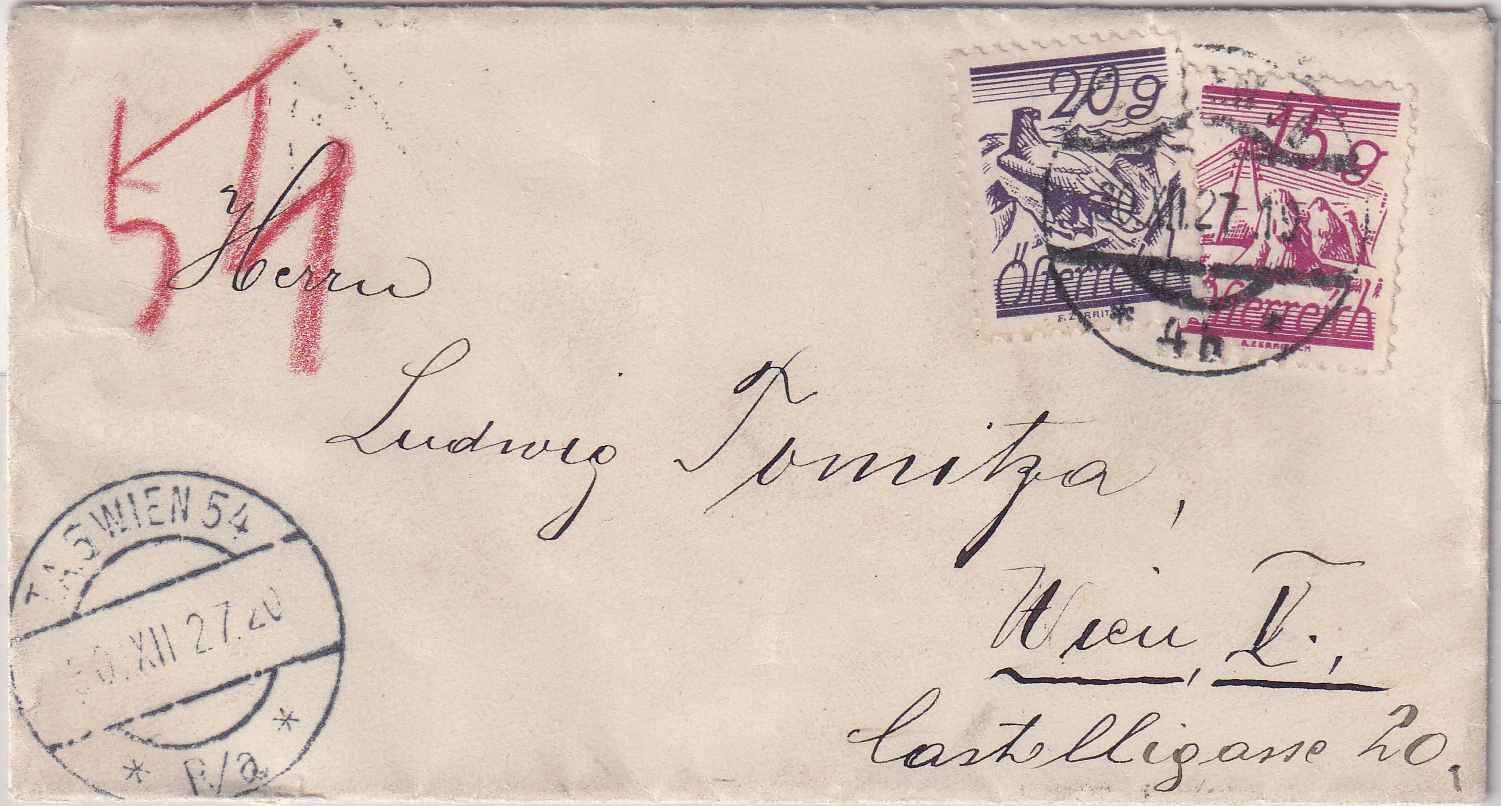 54
20 g
Österreich
15 g
Österreich
A. ZERRITSCH
XII.27.19
* 4b *
Herrn
Ludwig Tomitza,
Wien, V.,
Castelligasse 20,
WIEN 54
30.XII 27.20
* P/a *